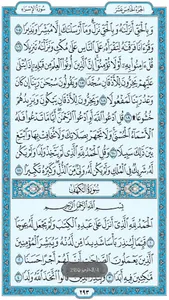 سُورَةُ الإِسْرَاءِ
الجُزْءُ الخَامِسَ عَشَرَ
وَبِالْحَقِّ أَنزَلْنَاهُ وَبِالْحَقِّ نَزَلَ وَمَا أَرْسَلْنَاكَ إِلَّا مُبَشِّرًا وَنَذِيرًا
وَقُرْآنًا فَرَقْنَاهُ لِتَقْرَأَهُ عَلَى النَّاسِ عَلَىٰ مُكْثٍ وَنَزَّلْنَاهُ تَنزِيلًا
قُلْ آمِنُوا بِهِ أَوْ لَا تُؤْمِنُوا إِنَّ الَّذِينَ أُوتُوا الْعِلْمَ مِن قَبْلِهِ إِذَا يُتْلَىٰ
عَلَيْهِمْ يَخِرُّونَ لِلْأَذْقَانِ سُجَّدًا وَيَقُولُونَ سُبْحَانَ رَبِّنَا إِن كَانَ
وَعْدُ رَبِّنَا لَمَفْعُولًا وَيَخِرُّونَ لِلْأَذْقَانِ يَبْكُونَ وَيَزِيدُهُمْ
خُشُوعًا قُلِ ادْعُوا اللَّهَ أَوِ ادْعُوا الرَّحْمَٰنَ أَيًّا مَّا تَدْعُوا فَلَهُ
الْأَسْمَاءُ الْحُسْنَىٰ وَلَا تَجْهَرْ بِصَلَاتِكَ وَلَا تُخَافِتْ بِهَا وَابْتَغِ بَيْنَ
ذَٰلِكَ سَبِيلًا وَقُلِ الْحَمْدُ لِلَّهِ الَّذِي لَمْ يَتَّخِذْ وَلَدًا وَلَمْ يَكُن
لَّهُ شَرِيكٌ فِي الْمُلْكِ وَلَمْ يَكُن لَّهُ وَلِيٌّ مِّنَ الذُّلِّ وَكَبِّرْهُ تَكْبِيرًا
سُورَةُ الكَهْفِ
بِسْمِ اللَّهِ الرَّحْمَٰنِ الرَّحِيمِ
الْحَمْدُ لِلَّهِ الَّذِي أَنزَلَ عَلَىٰ عَبْدِهِ الْكِتَابَ وَلَمْ يَجْعَل لَّهُ عِوَجًا
قَيِّمًا لِّيُنذِرَ بَأْسًا شَدِيدًا مِّن لَّدُنْهُ وَيُبَشِّرَ الْمُؤْمِنِينَ
الَّذِينَ يَعْمَلُونَ الصَّالِحَاتِ أَنَّ لَهُمْ أَجْرًا حَسَنًا
مَّاكِثِينَ فِيهِ أَبَدًا وَيُنذِرَ الَّذِينَ قَالُوا اتَّخَذَ اللَّهُ وَلَدًا
٢٩٣